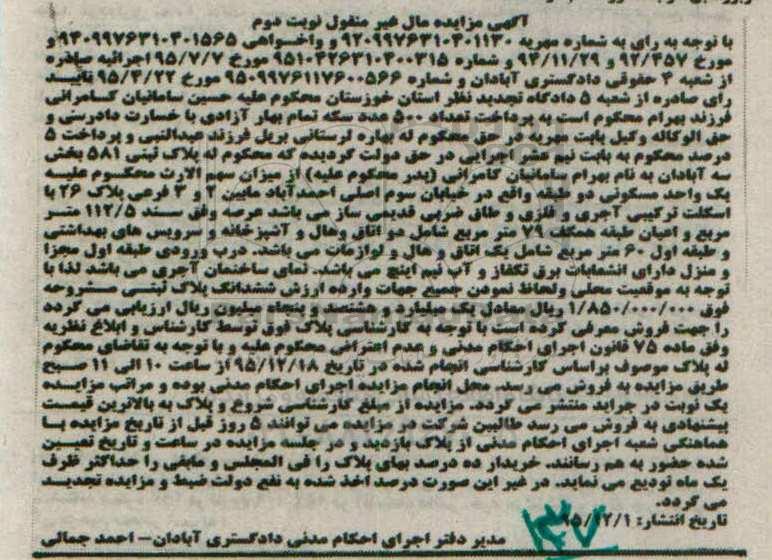 آگهی مزایده مال غیر منقول نوبت دوم
با توجه به رای به شماره مهریه ۹۲۰۹۹۷۶۳۱۰۴۰۱۱۳۰ و واخواهی ۹۴۰۹۹۷۶۳۱۰۴۰۱۵۶۵و
مورخ ۹۲/۴۵۷ و ۹۴/۱۱/۲۹ و شماره ۹۵۱۰۴۲۶۳۱۰۴۰۰۳۱۵ مورخ ۹۵/۷/۷ اجرائیه صادره
از شعبه ۴ حقوقی دادگستری آبادان و شماره ۹۵۰۹۹۷۶۱۱۷۶۰۰۵۶۶ مورخ ۹۵/۴/۲۲ تائید
رای صادره از شعبه ۵ دادگاه تجدید نظر استان خوزستان محکوم علیه حسین سامانیان کامرانی
فرزند بهرام محکوم است به پرداخت تعداد ۵۰۰ عدد سکه تمام بهار آزادی با خسارت دادرسی و
حق الوکاله وکیل بابت مهریه در حق محکوم له ساره لرستانی بریل فرزند عبدالنبی و پرداخت ۵
درصد محکوم به بابت نیم عشر اجرایی در حق دولت گردیده که محکوم له پلاک ثبتی ۵۸۱ بخش
سه آبادان به نام بهرام سامانیان کامرانی (پدر محکوم علیه) از میزان سهم الارث محکوم علیه
یک واحد مسکونی دو طبقه واقع در خیابان سوم اصلی احمدآباد مابین ۲ و ۳ فرعی پلاک ۲۶ با
اسکلت ترکیبی آجری و فلزی و طاق ضربی قدیمی ساز می باشد عرصه وفق سند ۱۱۲/۵ متر
مربع و اعیان طبقه همکف ۷۹ متر مربع شامل دو اتاق وهال و آشپزخانه و سرویس های بهداشتی
و طبقه اول ۶۰ متر مربع شامل یک اتاق و هال و لوازمات می باشد. درب ورودی طبقه اول مجزا
و منزل دارای انشعابات برق تکفاز و آب نیم اینچ می باشد. نمای ساختمان آجری می باشد لذا با
توجه به موقعیت محلی ولحاظ نمودن جمیع جهات وارده ارزش ششدانگ پلاک ثبتی مشروحه
فوق ۱/۸۵۰/۰۰۰/۰۰۰ ریال معادل یک میلیارد و هشتصد و پنجاه میلیون ریال ارزیابی می گردد
را جهت فروش معرفی کرده است با توجه به کارشناسی پلاک فوق توسط کارشناس و ابلاغ نظریه
وفق ماده ۷۵ قانون اجرای احکام مدنی و عدم اعتراض محکوم علیه و با توجه به تقاضای محکوم
له پلاک موصوف براساس کارشناسی انجام شده در تاریخ ۹۵/۱۲/۱۸ از ساعت ۱۰ الی ۱۱ صبح
طریق مزایده به فروش می رسد. محل انجام مزایده اجرای احکام مدنی بوده و مراتب مزایده
یک نوبت در جراید منتشر می گردد. مزایده از مبلغ کارشناسی شروع و پلاک به بالاترین قیمت
پیشنهادی به فروش می رسد طالبین شرکت در مزایده می توانند ۵ روز قبل از تاریخ مزایده با
هماهنگی شعبه اجرای احکام مدنی از پلاک بازدید و در جلسه مزایده در ساعت و تاریخ تعیین
شده حضور به هم رسانند. خریدار ده درصد بهای پلاک را فی المجلس و مابقی را حداکثر ظرف
یک ماه تودیع می نماید. در غیر این صورت درصد اخذ شده به نفع دولت ضبط و مزایده تجدید
می گردد.
تاریخ انتشار: ۹۵/۱۲/۱
مدیر دفتر اجرای احکام مدنی دادگستری آبادان– احمد جمالی